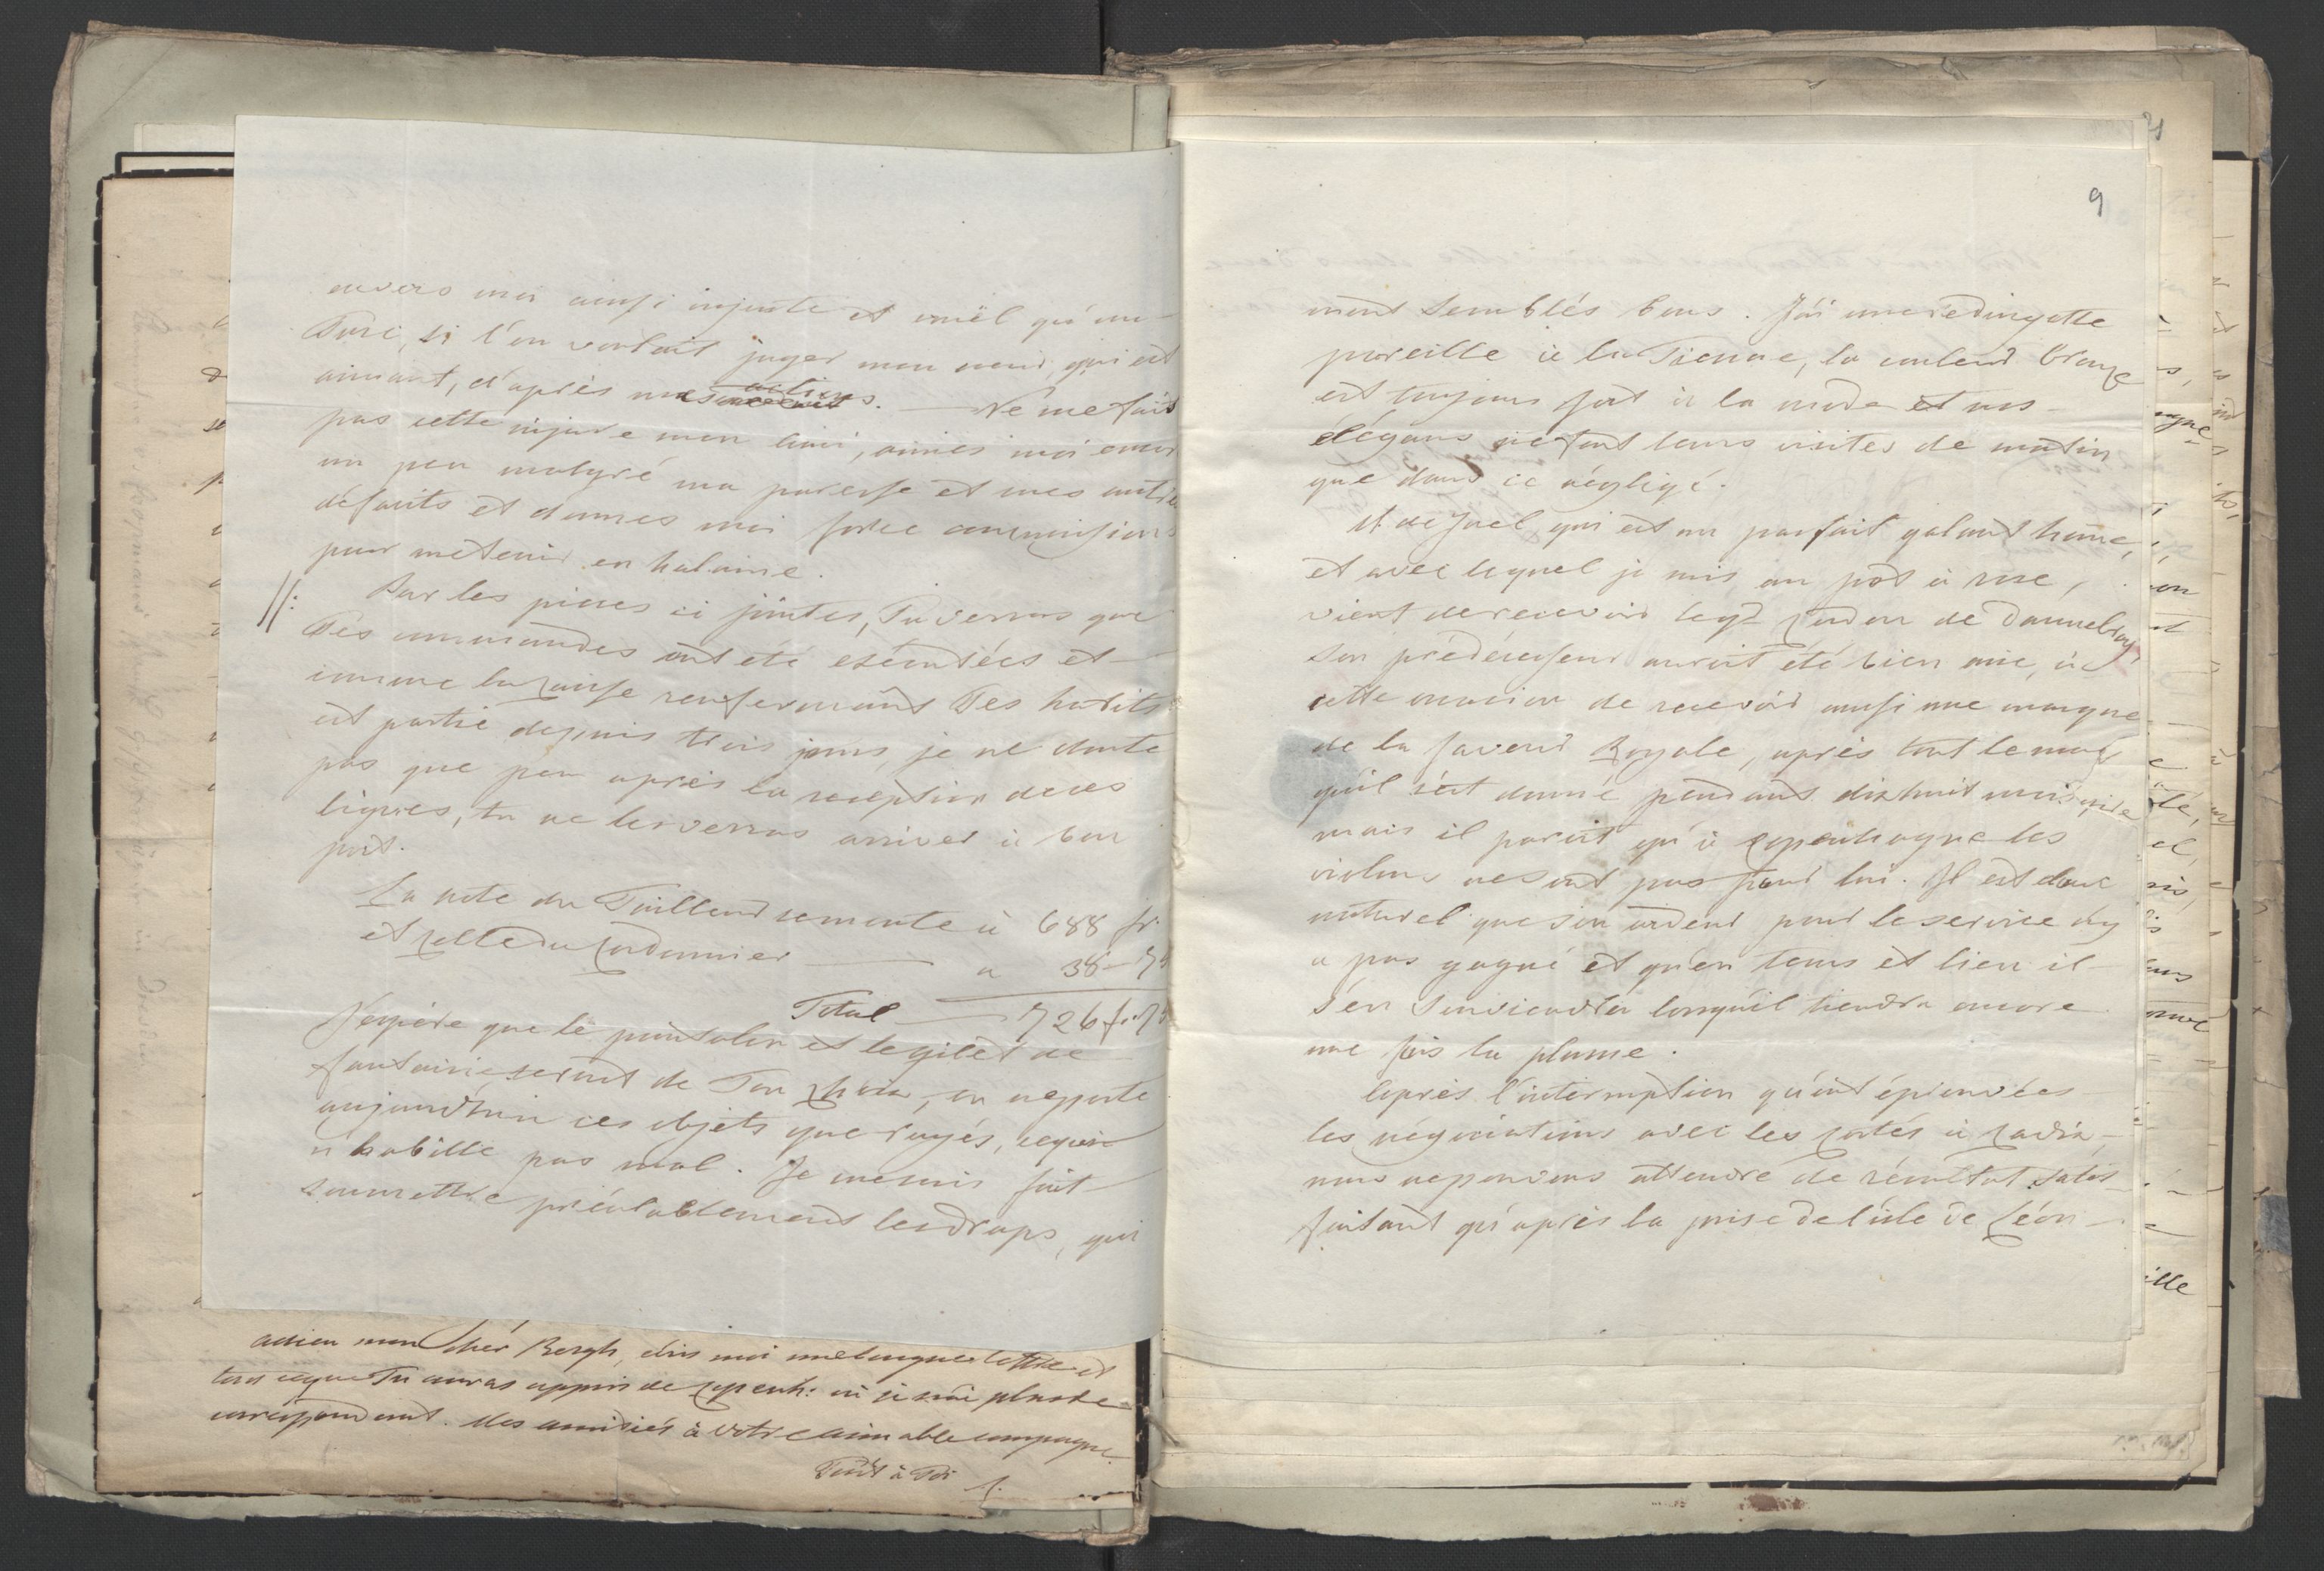 envers moi aussi injuste et cruël qu'un
Turc, si l'on voulait juger mon coeur, qui est
aimant, d'après mes actions. — Ne me fais
pas cette injure mon ami, aimes moi encor
un peu malgré ma paresse et mes autres
défauts et donnes moi force commissions
pour me tenir en halaine.
//: Par les pièces ci jointes, Tu verras que
Tes commandes ont été exécutées et
comme la Caisse renfermant Tes habits
est partie depuis trois jours, je ne doute
pas que peu après la reception de ces
lignes, tu ne les verras arriver à bon
port.
La note du Tailleur se monte à 688 fr.
et Celle du Cordonnier — a 38 – 75
Total — 726 fr. 75
J'espère que le pantalon et le gilet de
fantaisie seront de Ton choix, on ne porte
aujourd'hui ces objets que rayés, ce qui
n'habille pas mal. Je me suis fait
soumettre préalablement les draps, qui
adieu mon cher Bergh, écris moi une longue lettre et
tout ce que Tu auras appris de Copenh: où je n'ai plus de
correspondent. Mes amitiés à votre aimable compagne
Tout à Toi
9
mont semblés bons. J'ai une redingotte
pareille à la Tienne, la couleur bronze
est toujours fort à la mode et nos
élégans ne font leurs visites de matin
que dans ce négligé.
M. de Juel, qui est un parfait galant home,
et avec lequel je suis au pot à rose,
vient de recevoir le gd Cordon de Dannebrog,
son prédécesseur auroit été bien aise, à
cette occasion de recevoir aussi une marque
de la faveur Royale, après tout le mal
qu'il s'est donné pendant dixhuit mois
mais il paroit qu'à Copenhague les
violons ne sont pas pour lui. Il est donc
naturel que son ardeur pour le service n'y
a pas gagné et qu'en tems et lieu il
s'en souviendra lorsqu'il tiendra encore
une fois la plume.
Après l'interruption qu'ont éprouvées
les négociations avec les Cortés à Cadix,
nous ne pouvons attendre de résultat satis
faisant qu'après la prise de l'isle de Léon